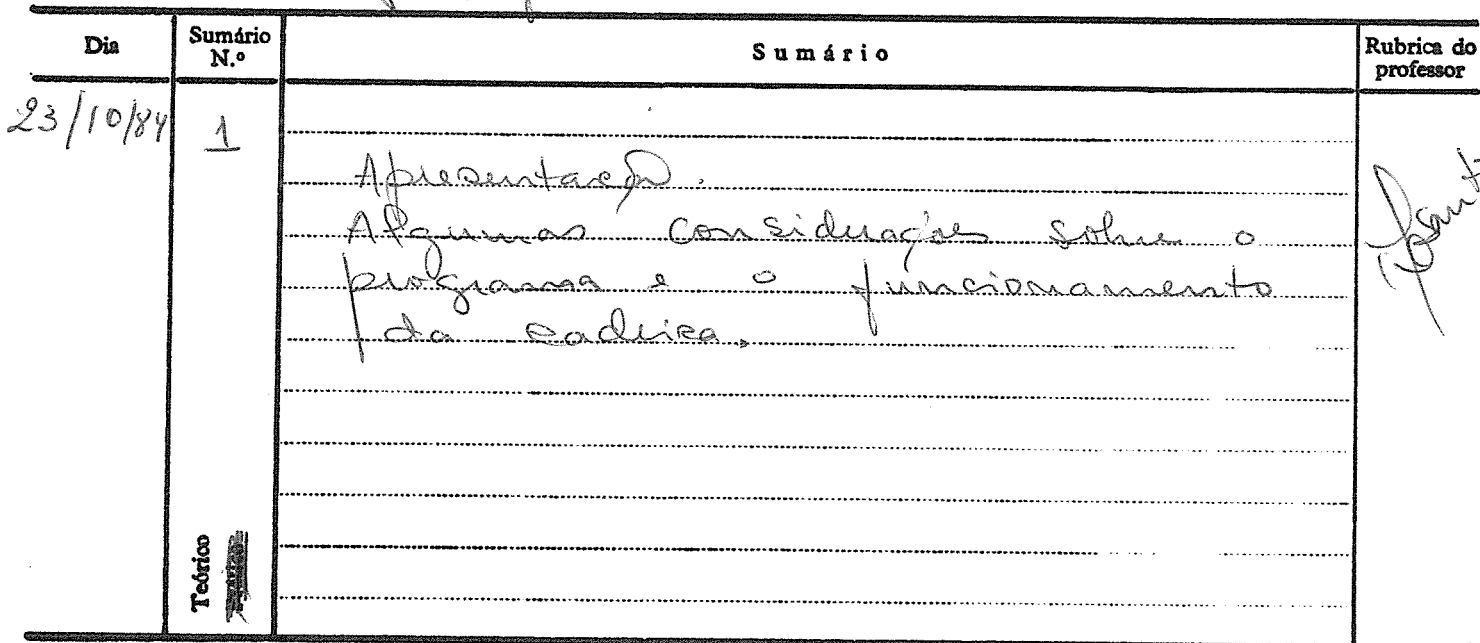 Dia
Sumário N.º
Sumário
Rubrica do professor
23/10/84
1
Apresentação.
Algumas considerações sobre o
programa e o funcionamento
da cadeira.
Teórico